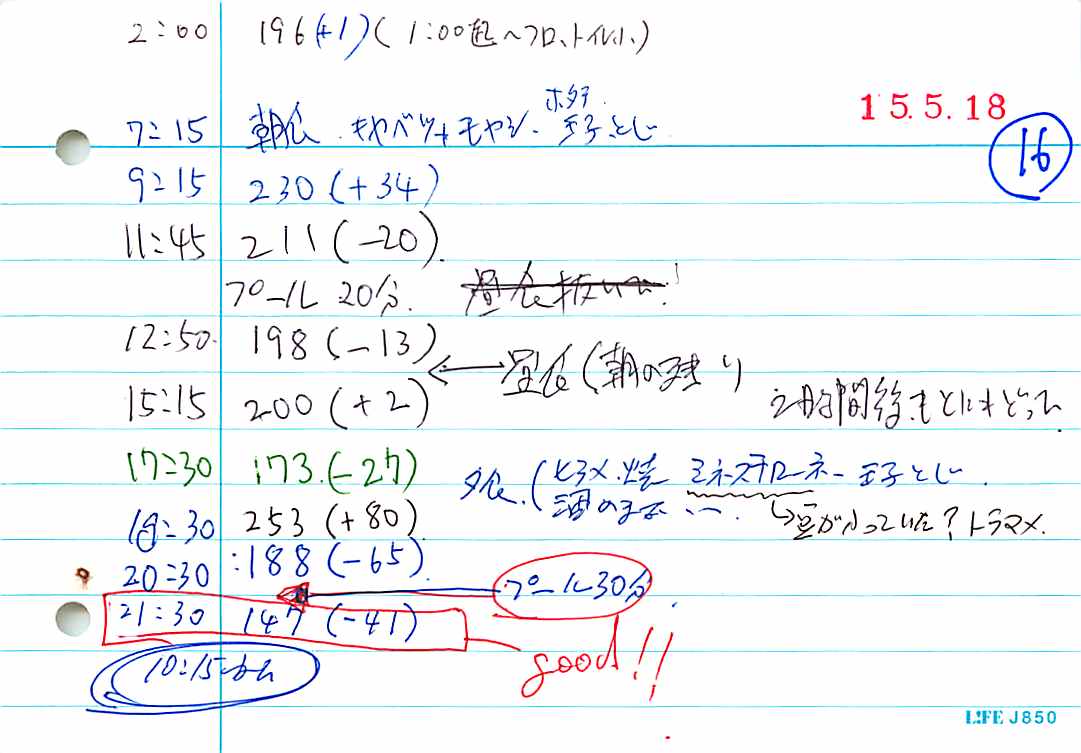 2:00 196(+1)(1:00起〜フロ、トイレ小)
15.5.18
16
ホタテ
7:15 朝食 キャベツ+モヤシ 玉子とじ
9:15 230(+34)
11:45 211(-20)
プール 20分. 昼食抜いて!
12:50 198(-13)
昼食(朝の残り)
15:15 200(+2)
2時間後もとにもどって
17:30 173(-27)
夕食(ヒラメ.焼 ミネストローネー玉子とじ
豆が入っていた?トラマメ.
18:30 253(+80)
20:30 188(-65)
プール30分
21:30 147(-41)
good!!
10:15
LIFE J850